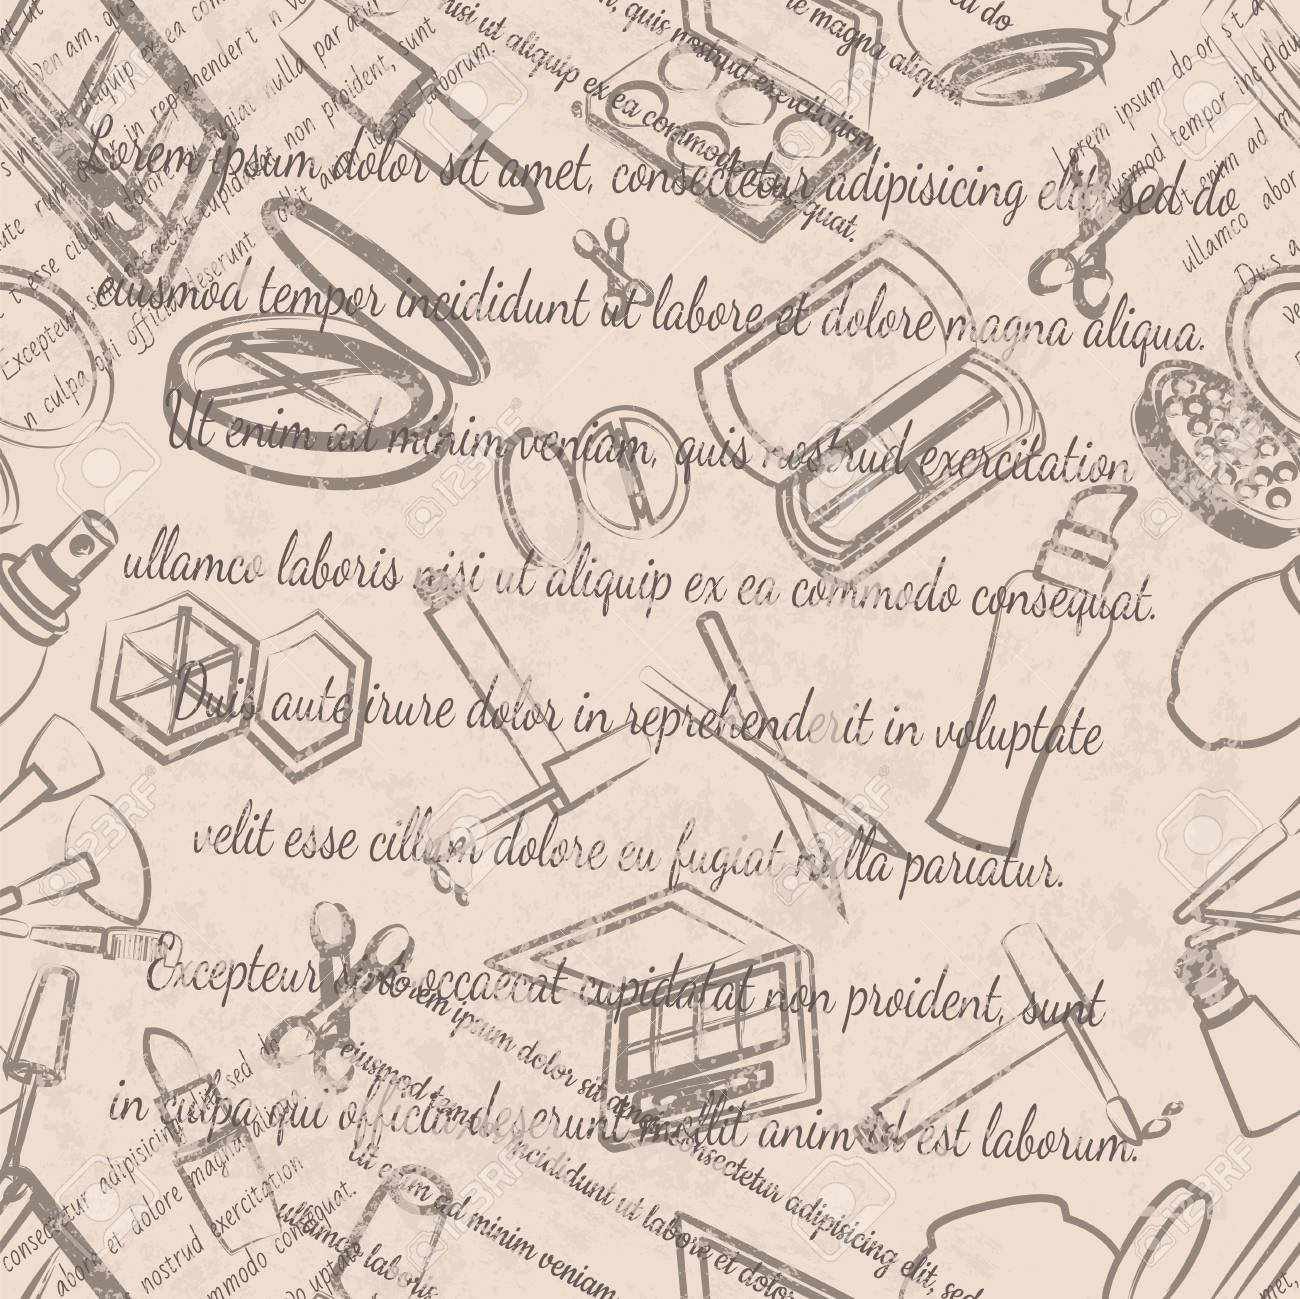 Lorem ipsum dolor sit amet, consectetur adipisicing elit, sed do
eiusmod tempor incididunt ut labore et dolore magna aliqua.
Ut enim ad minim veniam, quis nostrud exercitation
ullamco laboris nisi ut aliquip ex ea commodo consequat.
Duis aute irure dolor in reprehenderit in voluptate
velit esse cillum dolore eu fugiat nulla pariatur.
Excepteur sint occaecat cupidatat non proident, sunt
in culpa qui officia deserunt mollit anim id est laborum.
Lorem ipsum dolor sit amet, consectetur adipisicing elit, sed
eiusmod tempor incididunt ut labore et dolo
ut enim ad minim veniam
ullamco laboris
nisi ut aliquip ex ea commodo
quat.
quis nostrud exercitation,
re magna aliqua.
ea do
Lorem ipsum dolor sit a
eiusmod tempor incididu
ut enim ad m
ullamco labor
Duis a
consectetur adipisicing elit sed do
labore et dolore magna aliqua
nostrud exercitation
commodo consequat.
voluptate
in reprehenderit
fugiat nulla pariatur
Excepteur sint occaecat cupidatat non proident, sunt
n culpa qui officia deserunt mollit anim id est laborum.
123RF